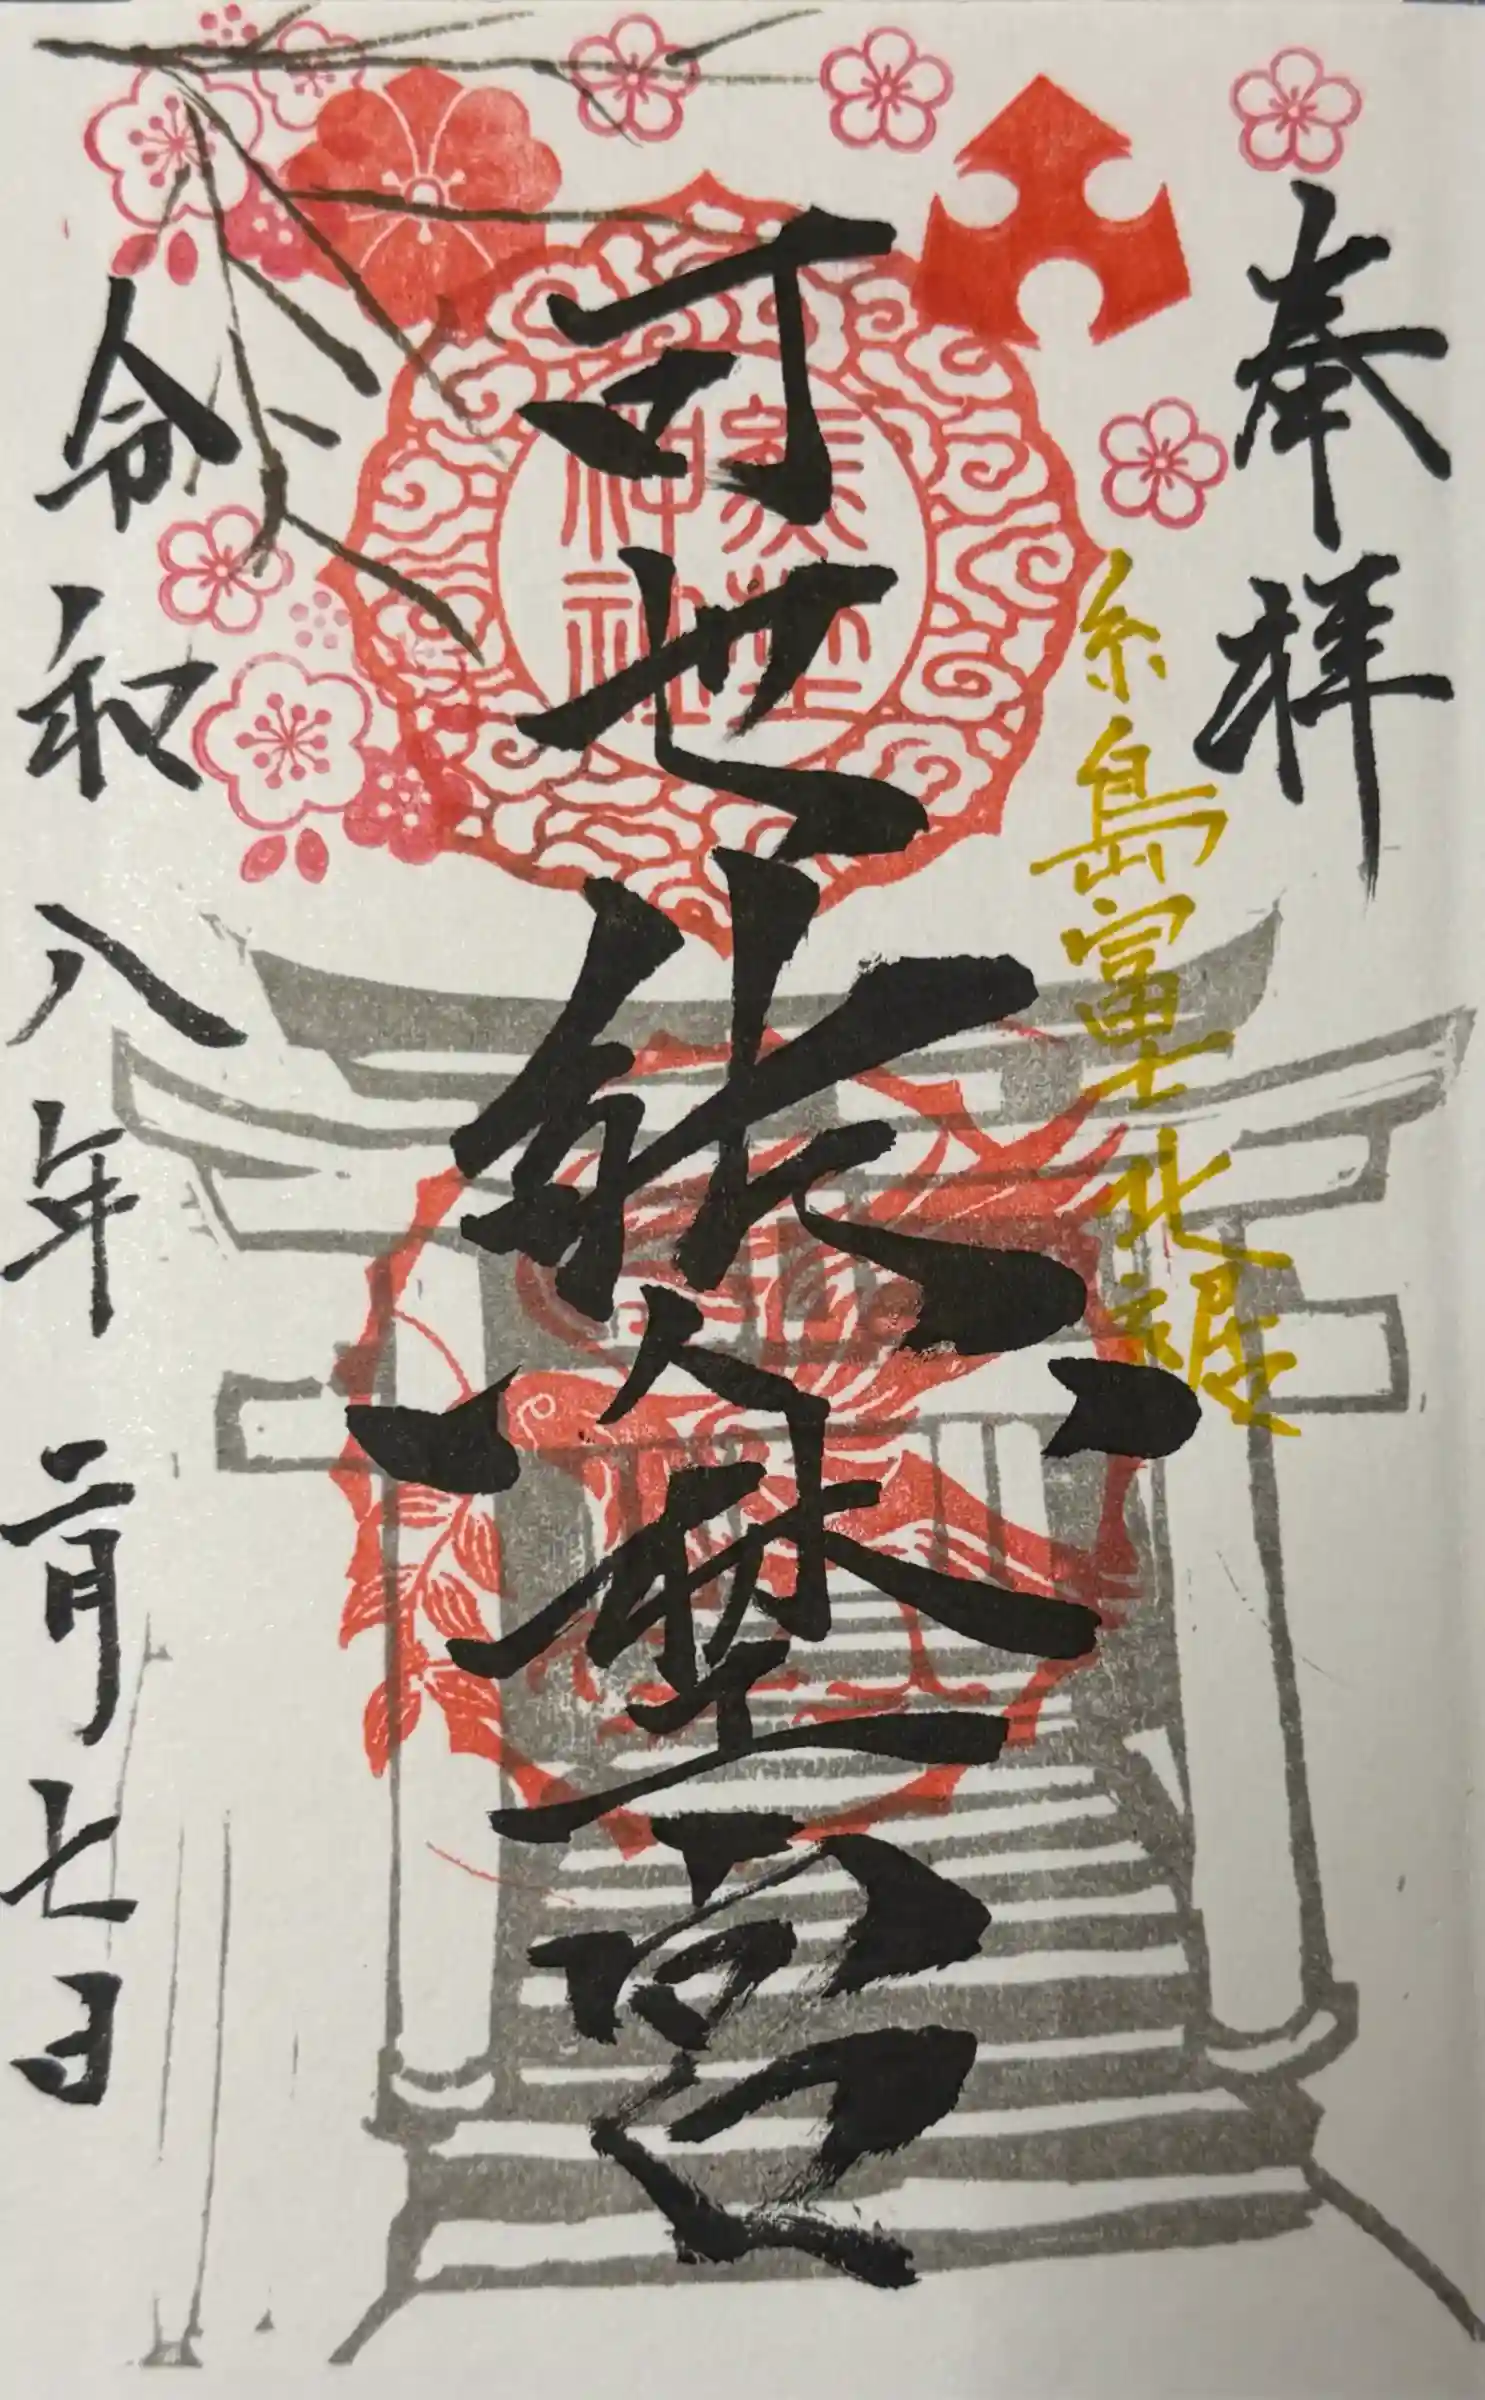 奉拝
糸島富士北裾
可也熊埜宮
令和八年二月七日